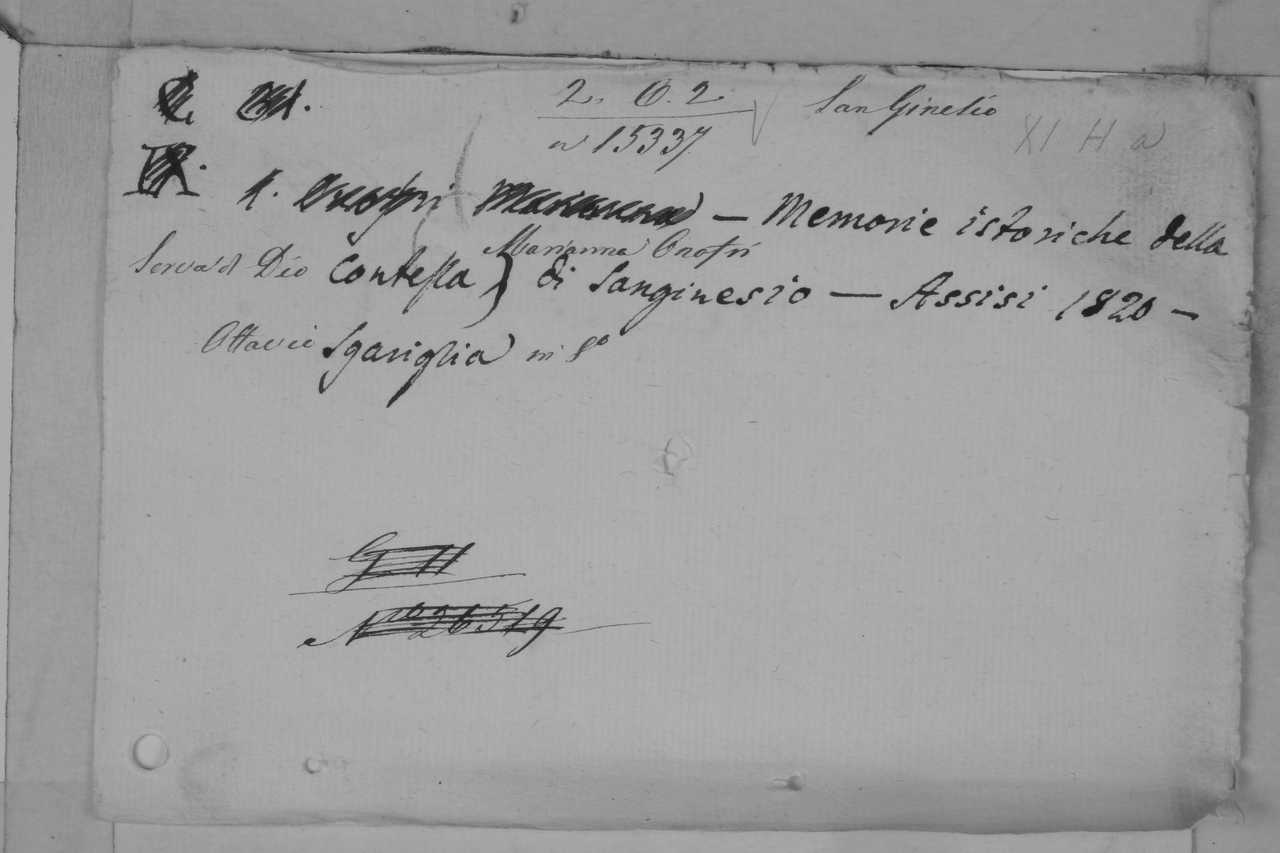 2. O. 2 San Ginesio
n 15337. XI H a
1. Onofri Marianna – Memorie istoriche della
Marianna Onofri
Serva di Dio Contessa) di Sanginesio – Assisi 1820 –
Ottavio Sgariglia in 8º
G II
Nº 26519